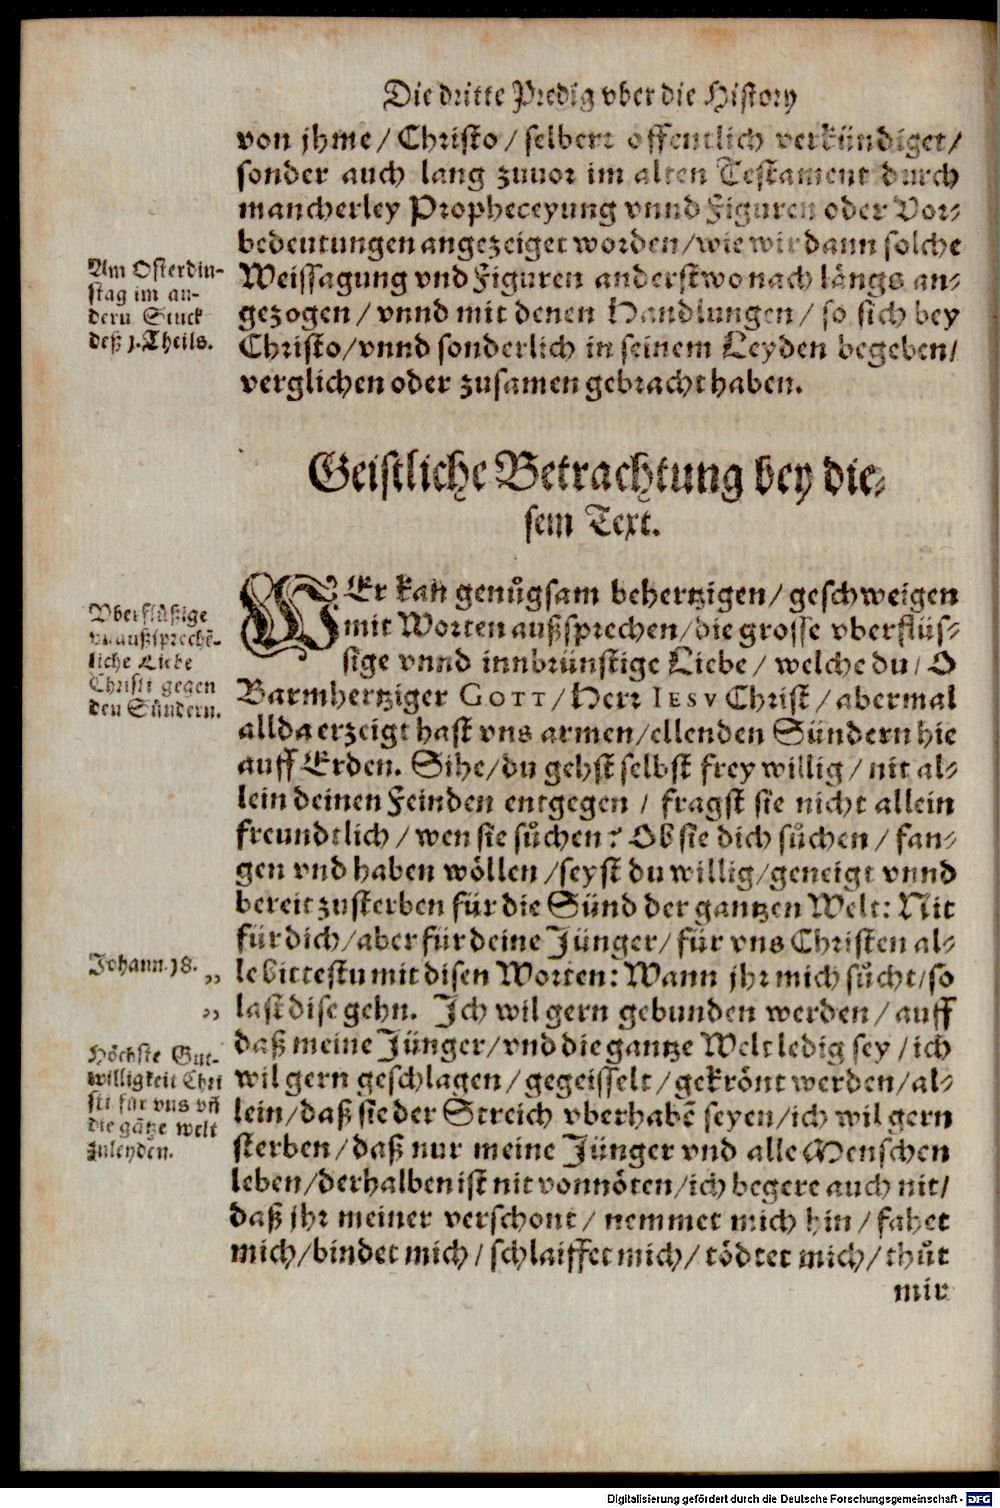 Die dritte Predig vber die History
von jhme / Christo / selbert offentlich verkündiget /
sonder auch lang zuuor im alten Testament durch
mancherley Propheceyung vnnd Figuren oder Vor-
bedeutungen angezeiget worden / wie wir dann solche
Am Osterdin-
stag im an-
dern Stuck
deß 1. Theils.
Weissagung vnd Figuren anderstwo nach längs an-
gezogen / vnnd mit denen Handlungen / so sich bey
Christo / vnnd sonderlich in seinem Leyden begeben /
verglichen oder zusamen gebracht haben.
Geistliche Betrachtung bey die-
sem Text.
Vberflüßige
vnaußsprechẽ-
liche Liebe
Christi gegen
den Sündern.
WEr kan genůgsam behertzigen / geschweigen
mit Worten außsprechen / die grosse vberflüs-
sige vnnd innbrünstige Liebe / welche du / O
Barmhertziger GOTT / Herr IESV Christ / abermal
allda erzeigt hast vns armen / ellenden Sündern hie
auff Erden. Sihe / du gehst selbst frey willig / nit al-
lein deinen Feinden entgegen / fragst sie nicht allein
freundtlich / wen sie sůchen? Ob sie dich sůchen / fan-
gen vnd haben wöllen / seyst du willig / geneigt vnnd
bereit zusterben für die Sünd der gantzen Welt: Nit
für dich / aber für deine Jünger / für vns Christen al-
Johann. 18.
„ le bittestu mit disen Worten: Wann jhr mich sůcht / so
„ last dise gehn. Ich wil gern gebunden werden / auff
Höchste Gut-
willigkeit Chri
sti für vns vñ
die gãtze welt
zuleyden.
daß meine Jünger / vnd die gantze Welt ledig sey / ich
wil gern geschlagen / gegeisselt / gekrönt werden / al-
lein / daß sie der Streich vberhabẽ seyen / ich wil gern
sterben / daß nur meine Jünger vnd alle Menschen
leben / derhalben ist nit vonnöten / ich begere auch nit /
daß jhr meiner verschont / nemmet mich hin / fahet
mich / bindet mich / schlaiffet mich / tödtet mich / thůt
mir
Digitalisierung gefördert durch die Deutsche Forschungsgemeinschaft - DFG